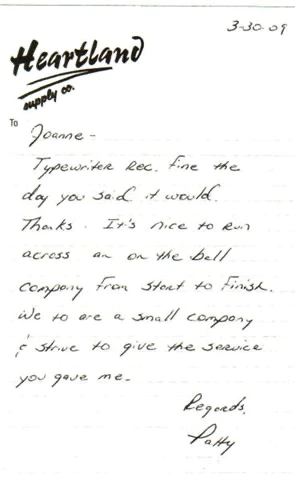 3-30-09
Heartland
supply co.
To
Joanne -
Typewriter Rec. fine the
day you said it would.
Thanks. It's nice to run
across an on the ball
company from start to finish.
We to are a small company
& strive to give the service
you gave me.
Regards,
Patty